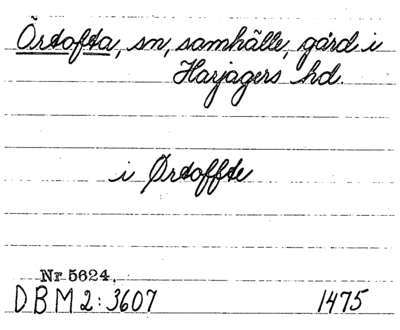 Örtofta, sn, samhälle, gård i
Harjagers hd.
i Ørtoffte
Nr 5624.
DBM 2:3607 1475